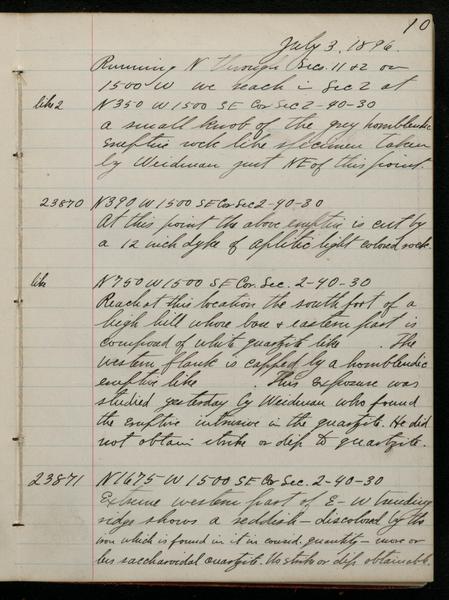 10
July 3, 1896.
Running N through Secs. 11 & 2 on
1500 W we reach in Sec 2 at
like 2 N 350 W 1500 SE Cor Sec 2-40-30
a small knob of the grey hornblendic
eruptive rock like specimen taken
by Weidman just NE of this point.
23870 N 390 W 1500 SE Cor Sec 2-40-30
At this point the above eruptive is cut by
a 12 inch dyke of aplitic light colored rock.
like N 750 W 1500 SE Cor. Sec. 2-40-30
Reach at this location the south foot of a
high hill whose base & eastern part is
composed of white quartzite like . The
western flank is capped by a hornblendic
eruptive like . This exposure was
studied yesterday by Weidman who found
the eruptive intrusive in the quartzite. He did
not obtain strike or dip to quartzite.
23871 N 1675 W 1500 SE Cor Sec. 2-40-30
Extreme western part of E-W trending
ridge shows a reddish - discolored by the
iron which is found in it in consid. quantity - more or
less saccharoidal quartzite. No strike or dip obtainable.